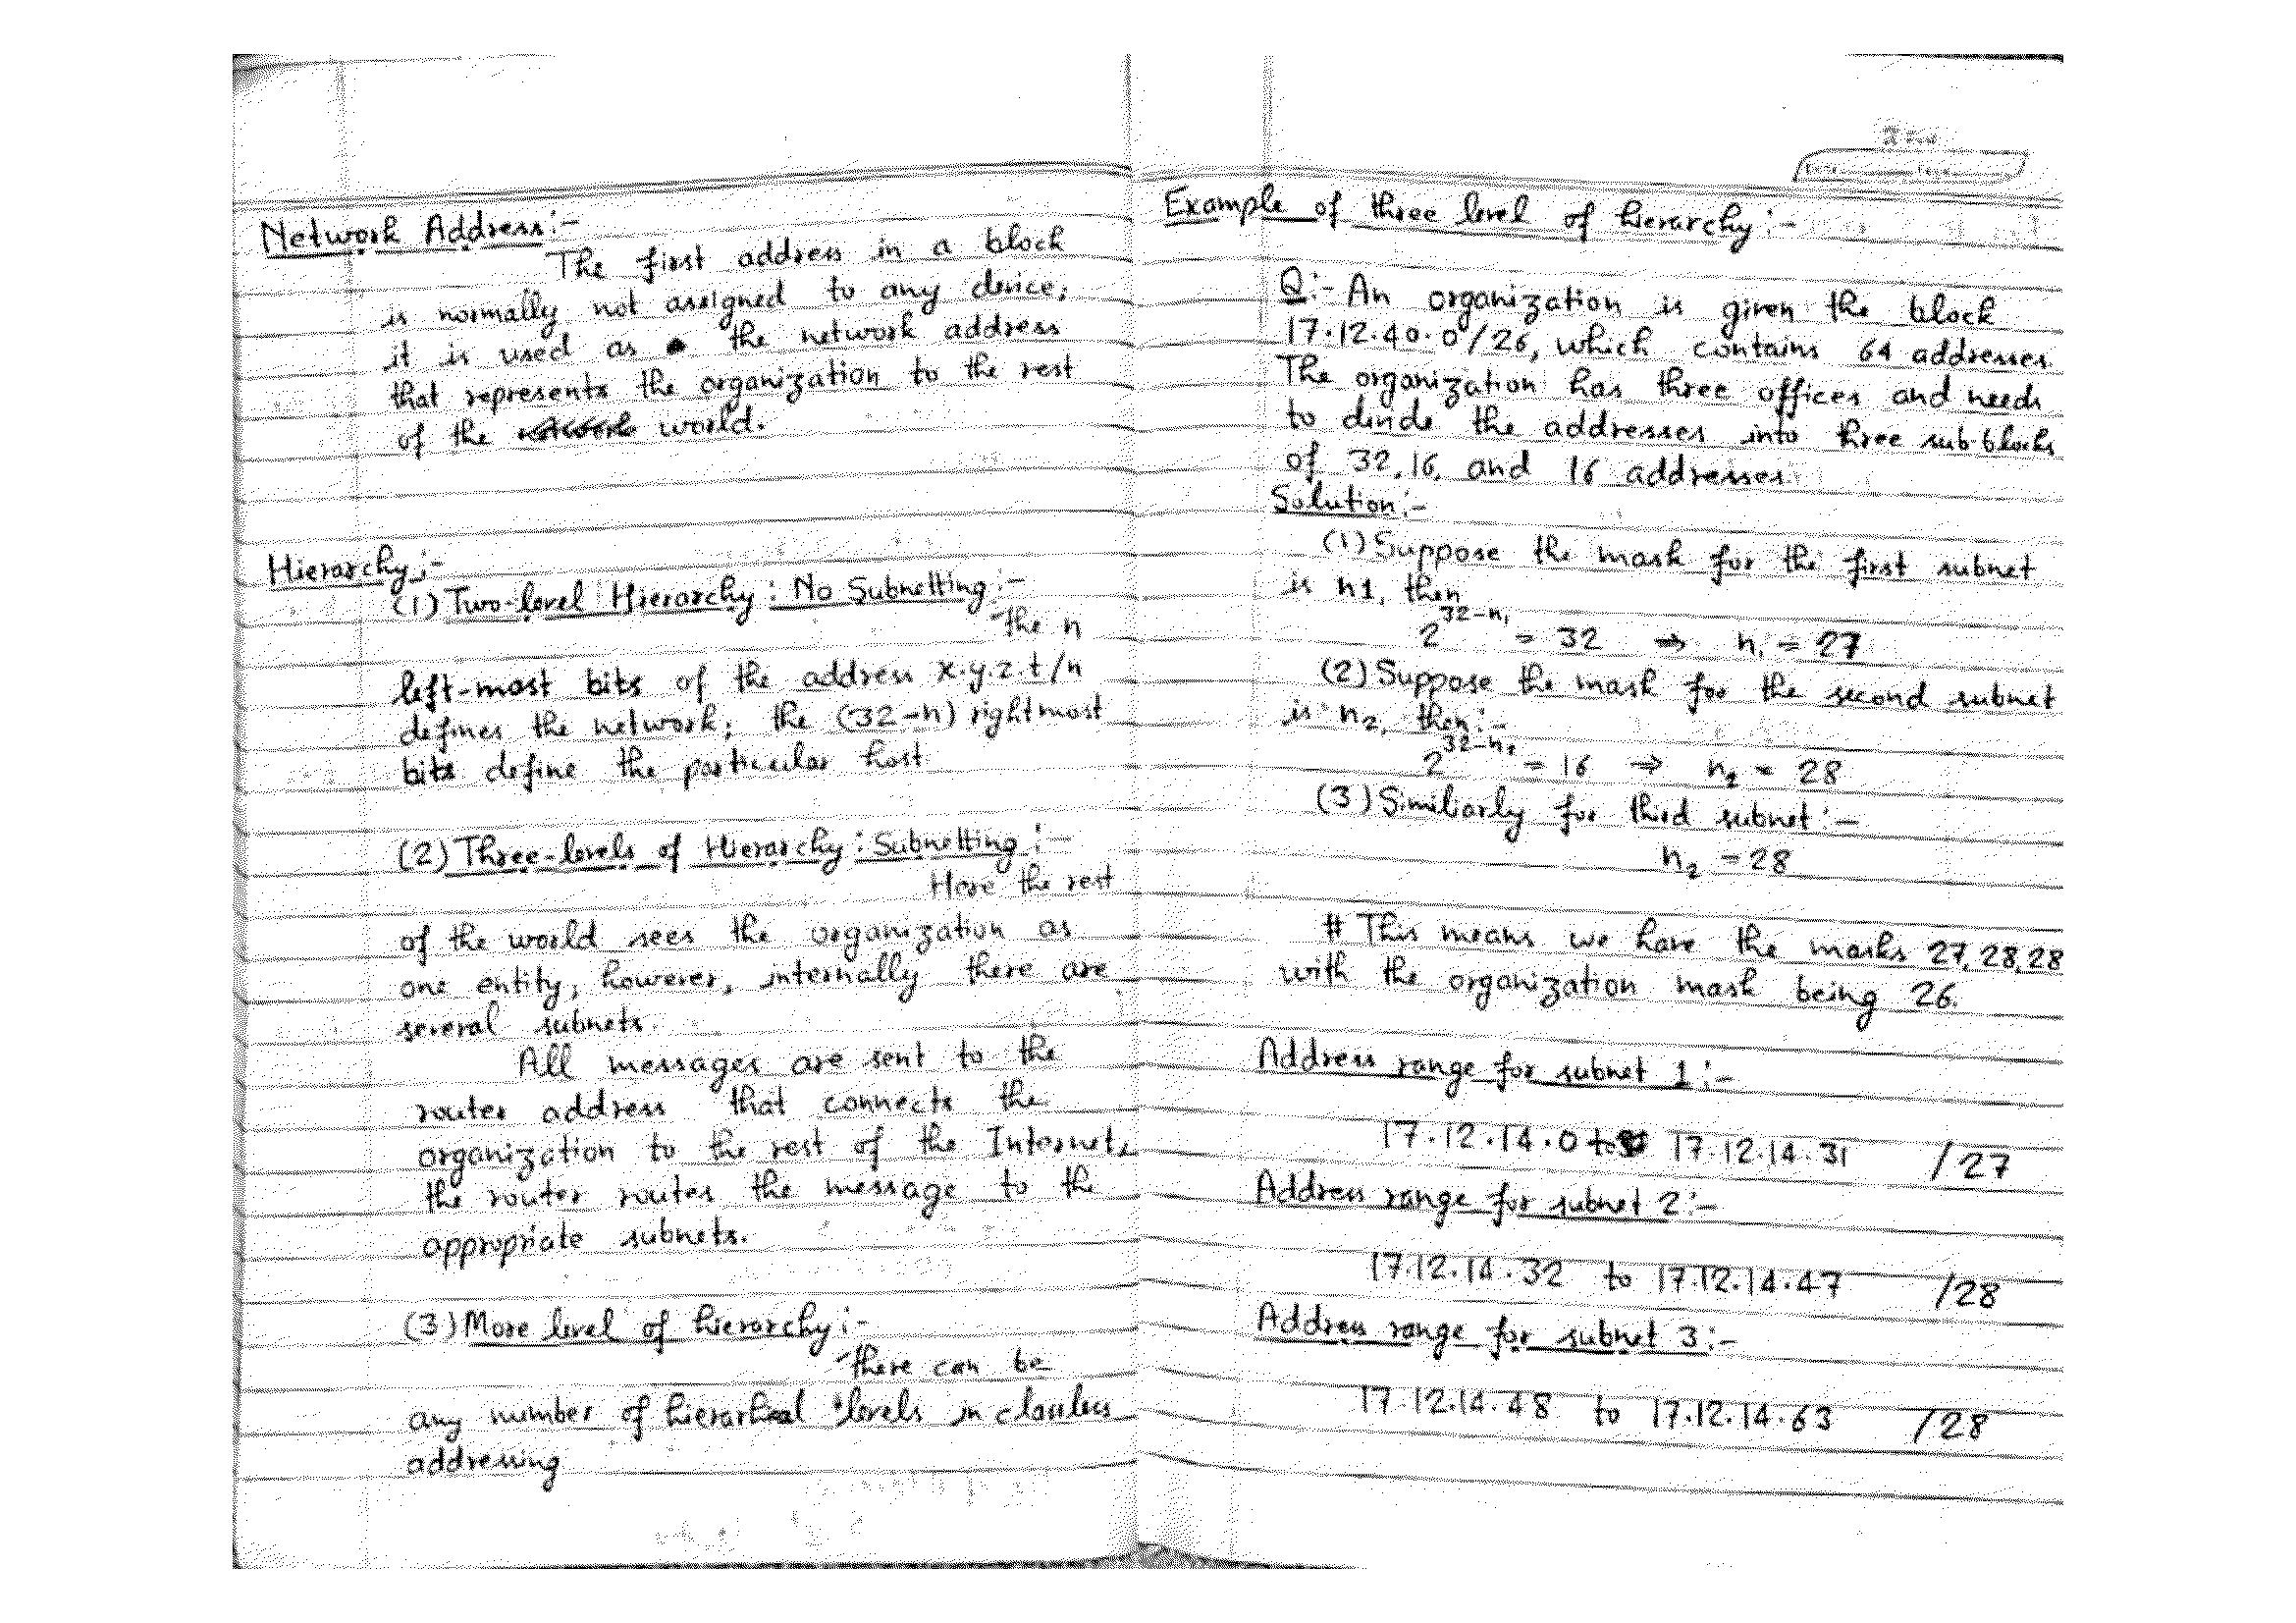 Network Address:-
The first address in a block
is normally not assigned to any device;
it is used as the network address
that represents the organization to the rest
of the world.
Hierarchy:-
(1) Two-level Hierarchy: No Subnetting:-
The n
left-most bits of the address x.y.z.t/n
defines the network; the (32-n) rightmost
bits define the particular host
(2) Three-levels of Hierarchy: Subnetting:-
Here the rest
of the world sees the organization as
one entity; however, internally there are
several subnets.
All messages are sent to the
router address that connects the
organization to the rest of the Internet,
the router routes the message to the
appropriate subnets.
(3) More level of hierarchy:-
There can be
any number of levels in classless
addressing
Example of three level of hierarchy:-
Q:- An organization is given the block
17.12.40.0/26, which contains 64 addresses.
The organization has three offices and needs
to divide the addresses into three sub blocks
of 32, 16, and 16 addresses.
Solution:-
(1) Suppose the mask for the first subnet
is n1, then
2^32-n₁ = 32 ⇒ n₁ = 27
(2) Suppose the mask for the second subnet
is n₂, then:-
2^32-n₂ = 16 ⇒ n₂ = 28
(3) Similiarly for third subnet:-
n₂ = 28
# This means we have the masks 27, 28, 28
with the organization mask being 26.
Address range for subnet 1:-
17.12.14.0 to 17.12.14.31 /27
Address range for subnet 2:-
17.12.14.32 to 17.12.14.47 /28
Address range for subnet 3:-
17.12.14.48 to 17.12.14.63 /28